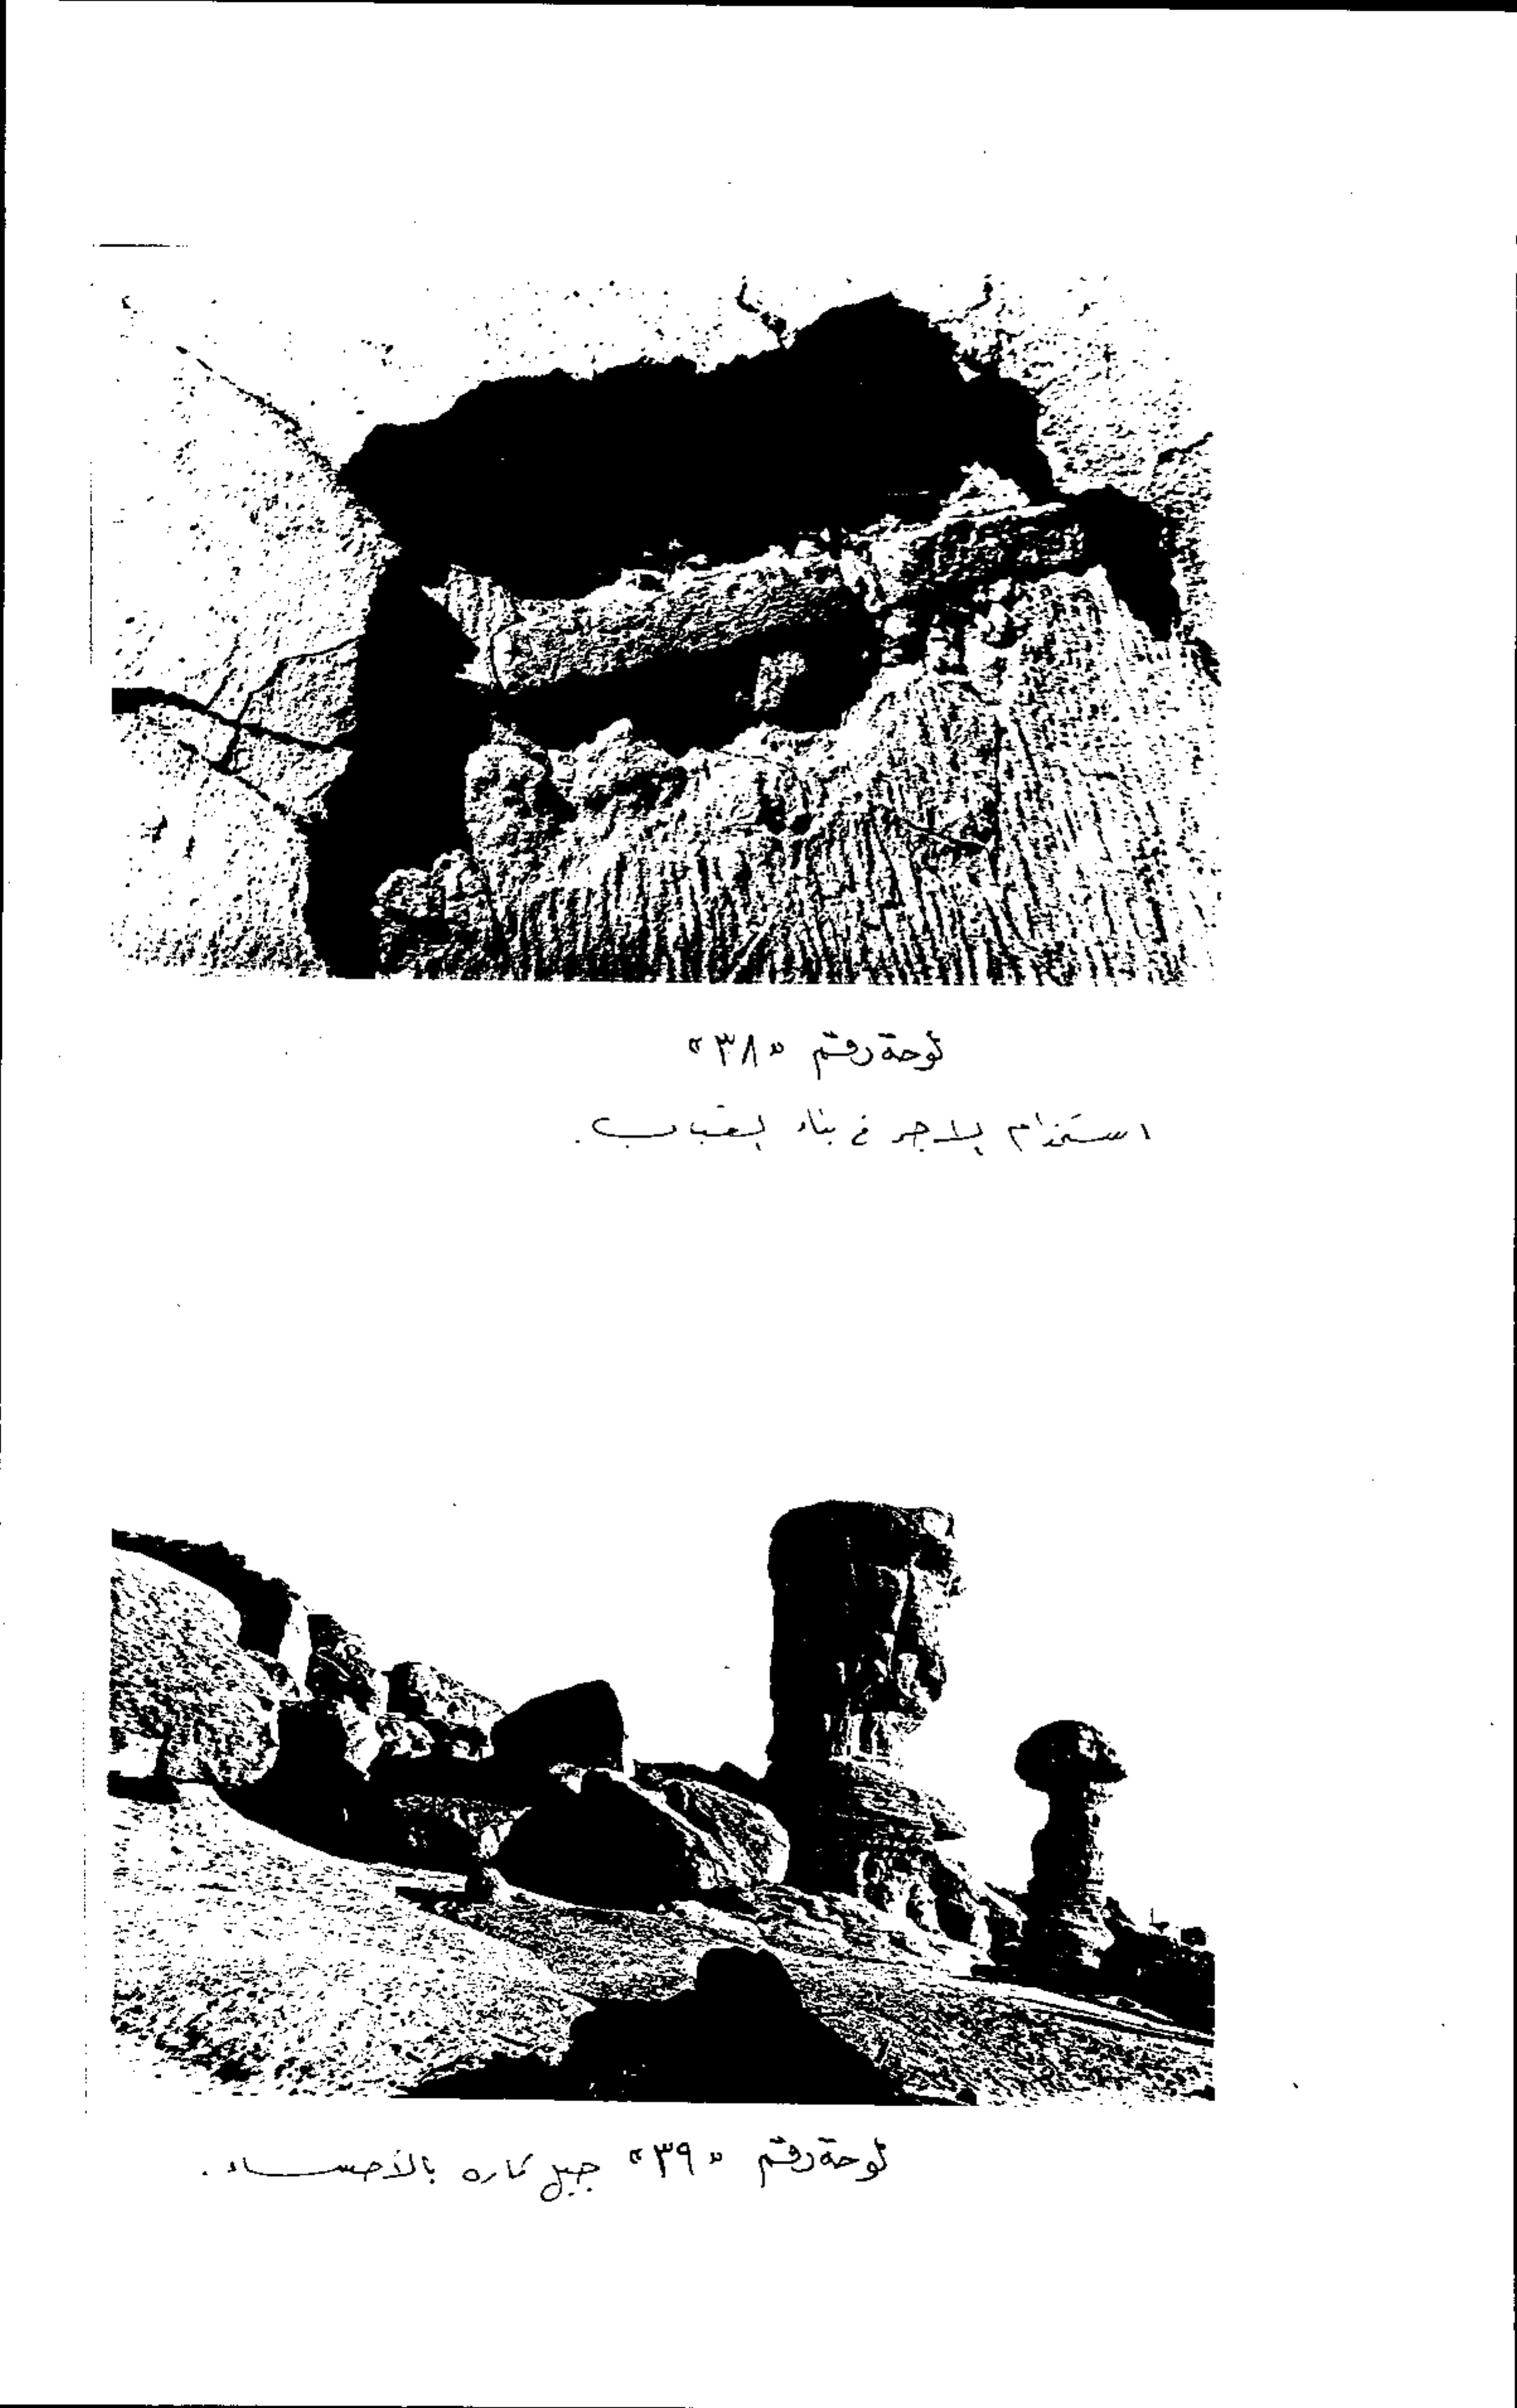 لوحة رقم «٣٨»
استخدام الاجر في بناء القباب.
لوحة رقم «٣٩» جبل قاره بالأحساء.